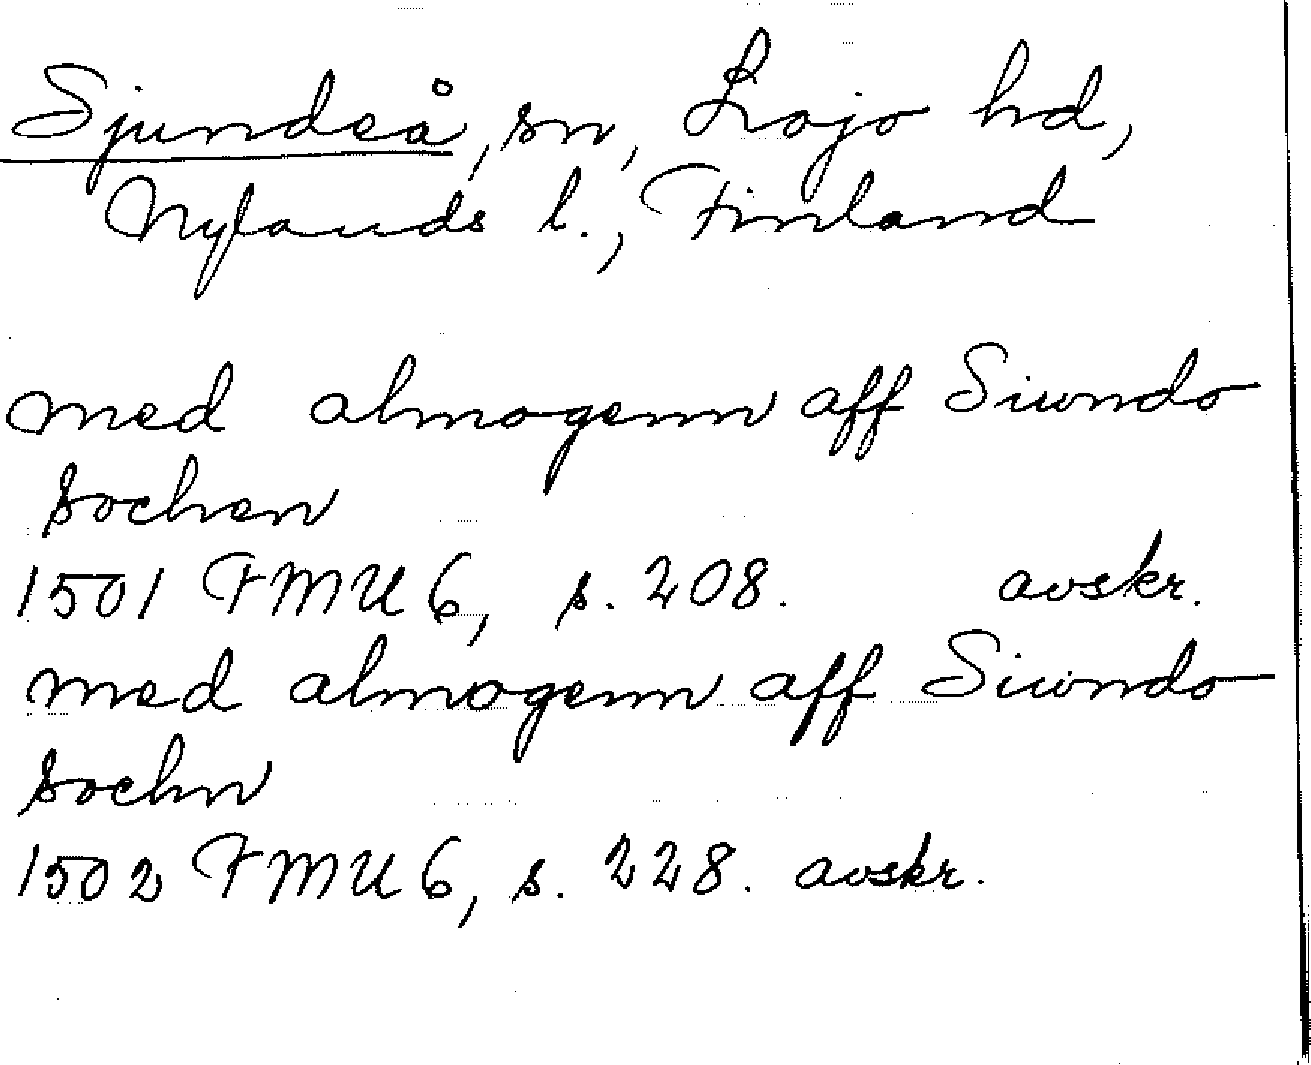 Sjundeå, sn, Lojo hd,
Nylands l., Finland
med almogenn aff Siwndo
sochen
1501 FMU 6, s. 208. avskr.
med almogenn aff Siwndo
sochn
1502 FMU 6, s. 228. avskr.